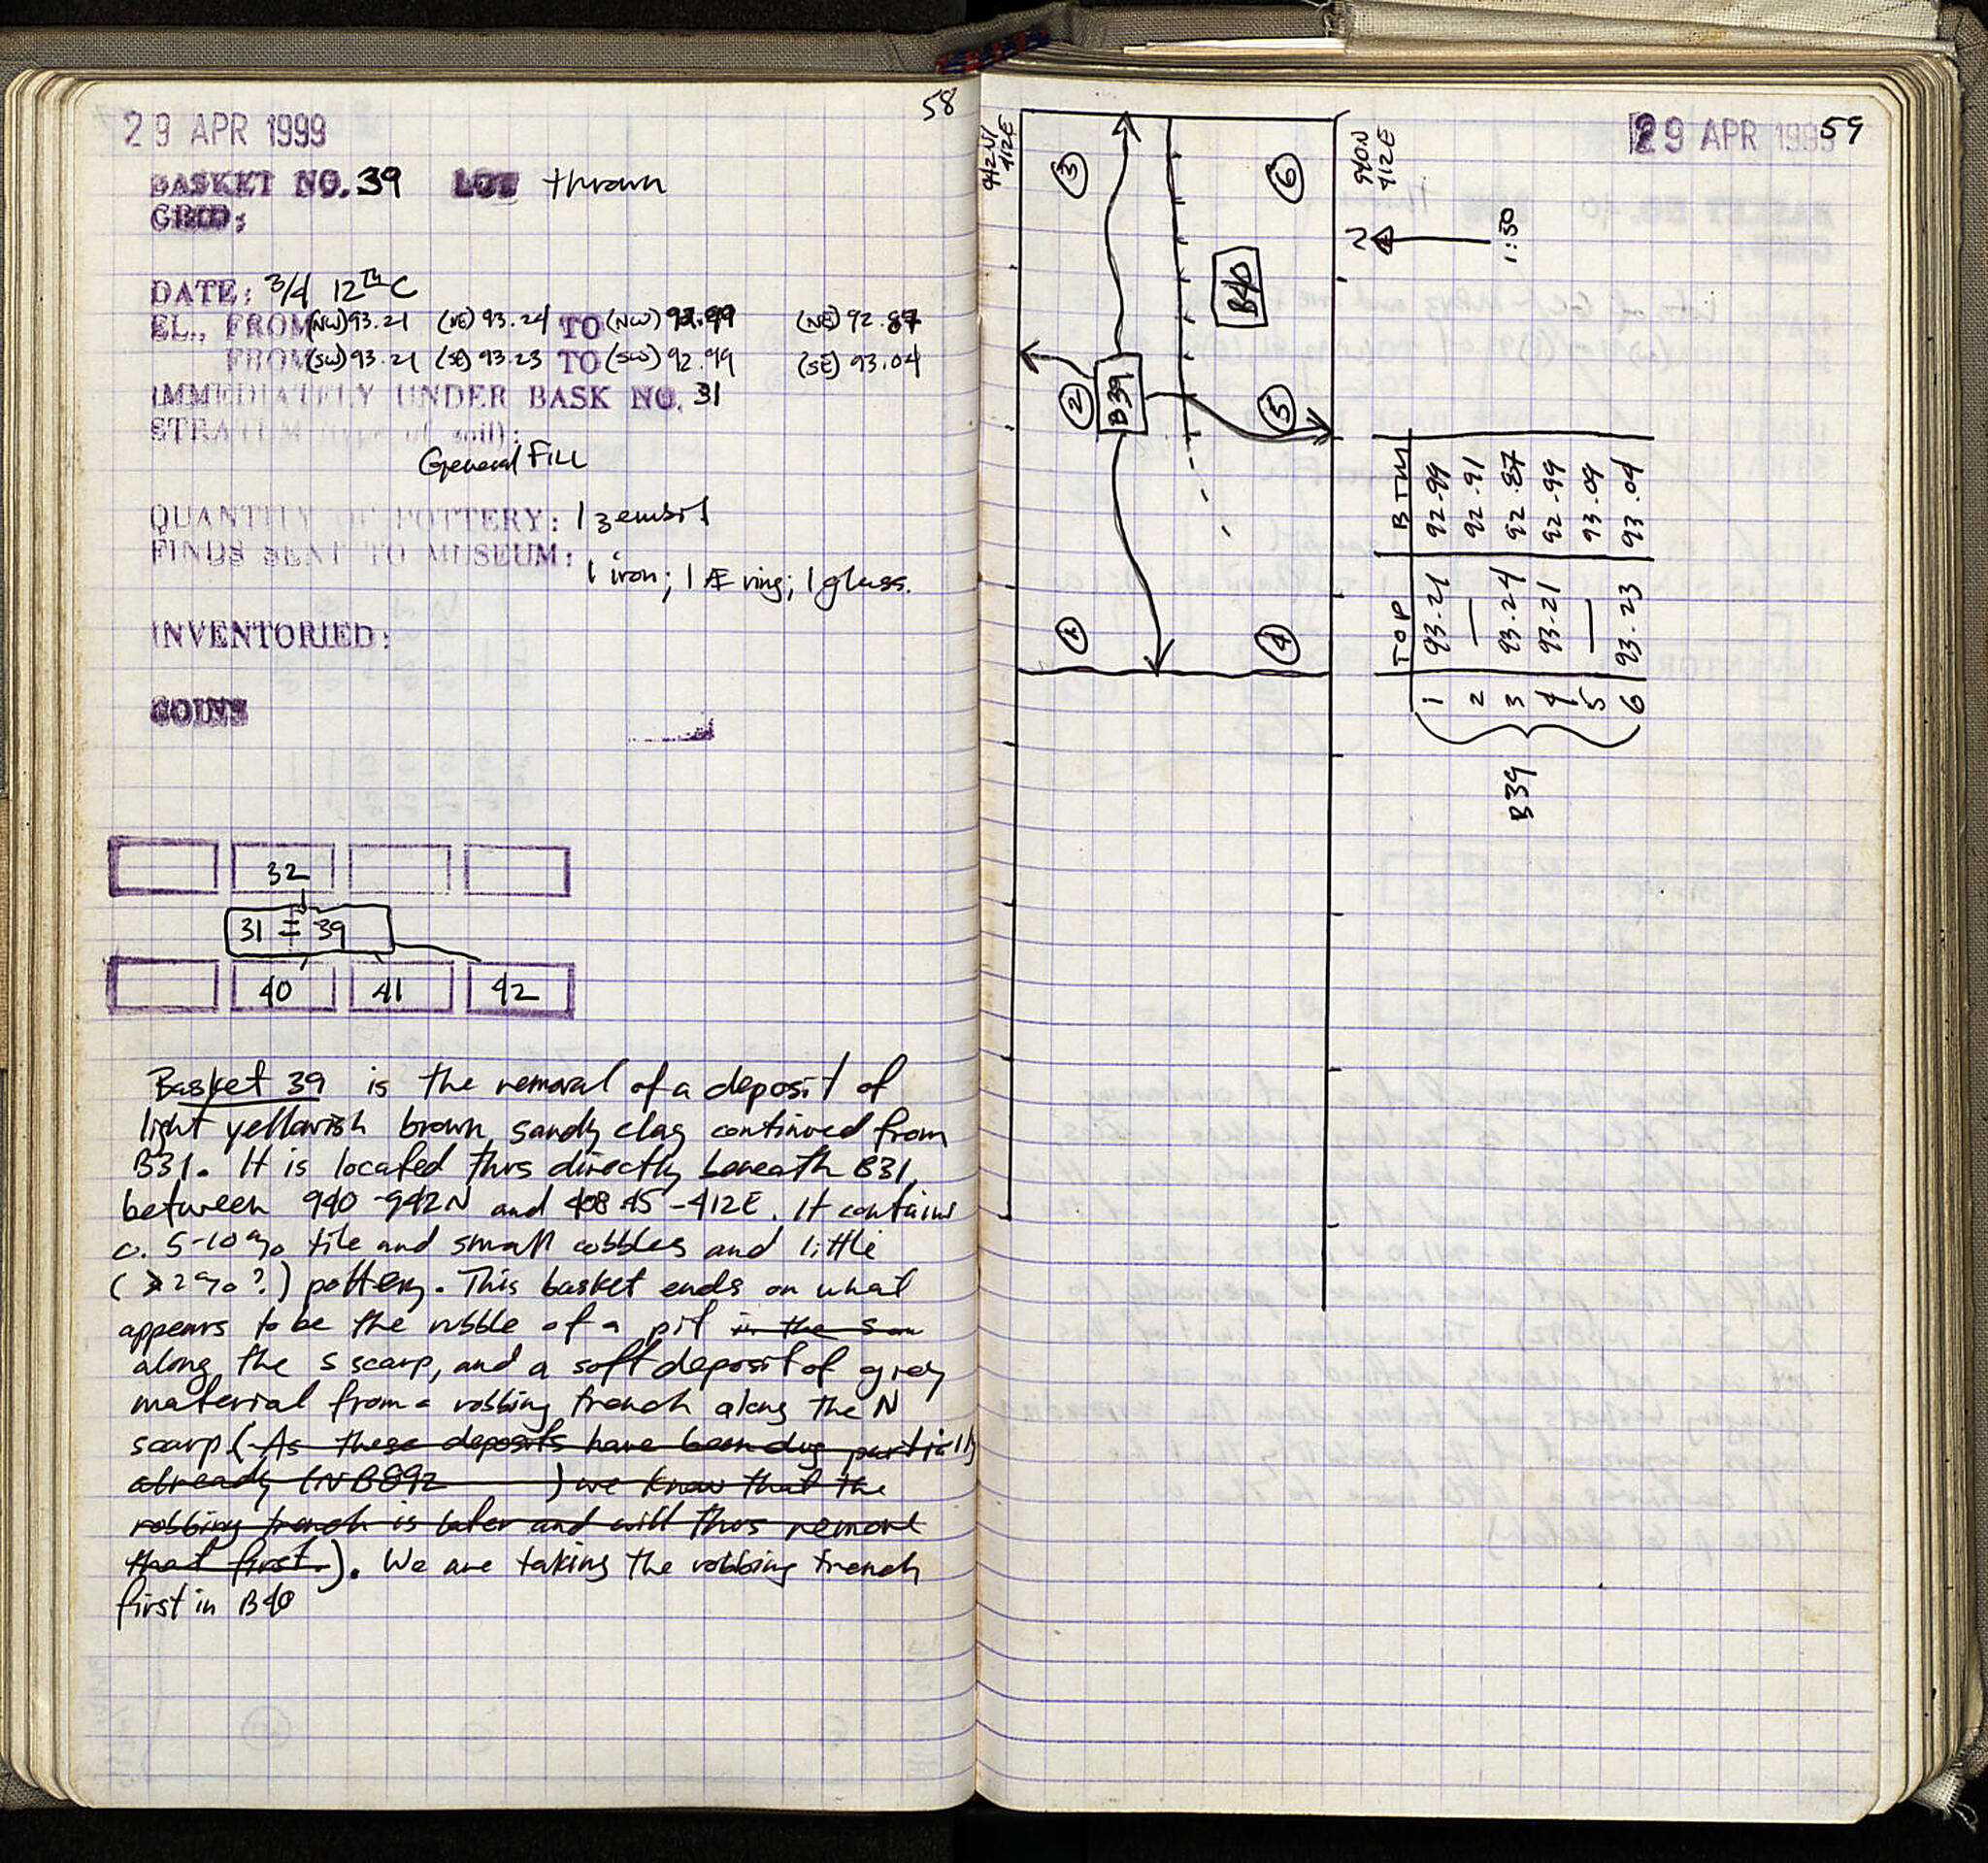 58
29 APR 1999
BASKET NO. 39 LOT thrown
GRID:
DATE: 3/4 12th C
EL., FROM (NW) 93.21 (NE) 93.24 TO (NW) 92.99 (NE) 92.87
FROM (SW) 93.21 (SE) 93.23 TO (SW) 92.99 (SE) 93.04
IMMEDIATELY UNDER BASK NO. 31
STRATUM (type of soil):
General Fill
QUANTITY OF POTTERY: 1 zembil
FINDS SENT TO MUSEUM:
1 iron; 1 Æ ring; 1 glass.
INVENTORIED:
COINS
32
31 = 39
40 41 42
Basket 39 is the removal of a deposit of
light yellowish brown sandy clay continued from
B31. It is located thus directly beneath B31,
between 940-942N and 408.45-412E. It contains
c. 5-10% tile and small cobbles and little
(>2%?) pottery. This basket ends on what
appears to be the rubble of a pit in the
along the S scarp, and a soft deposit of grey
material from a robbing trench along the N
scarp. (As these deposits have been dug partially
already (NB892 ) we know that the
robbing trench is later and will thus remove
that first.). We are taking the robbing trench
first in B40
29 APR 1999 59
942N/
412E
940N
412E
3
6
N
1:50
B40
2
B39
5
1
4
TOP BTM
1 93.21 92.99
2 — 92.91
3 93.24 92.87
4 93.21 92.99
5 — 93.09
6 93.23 93.04
B39